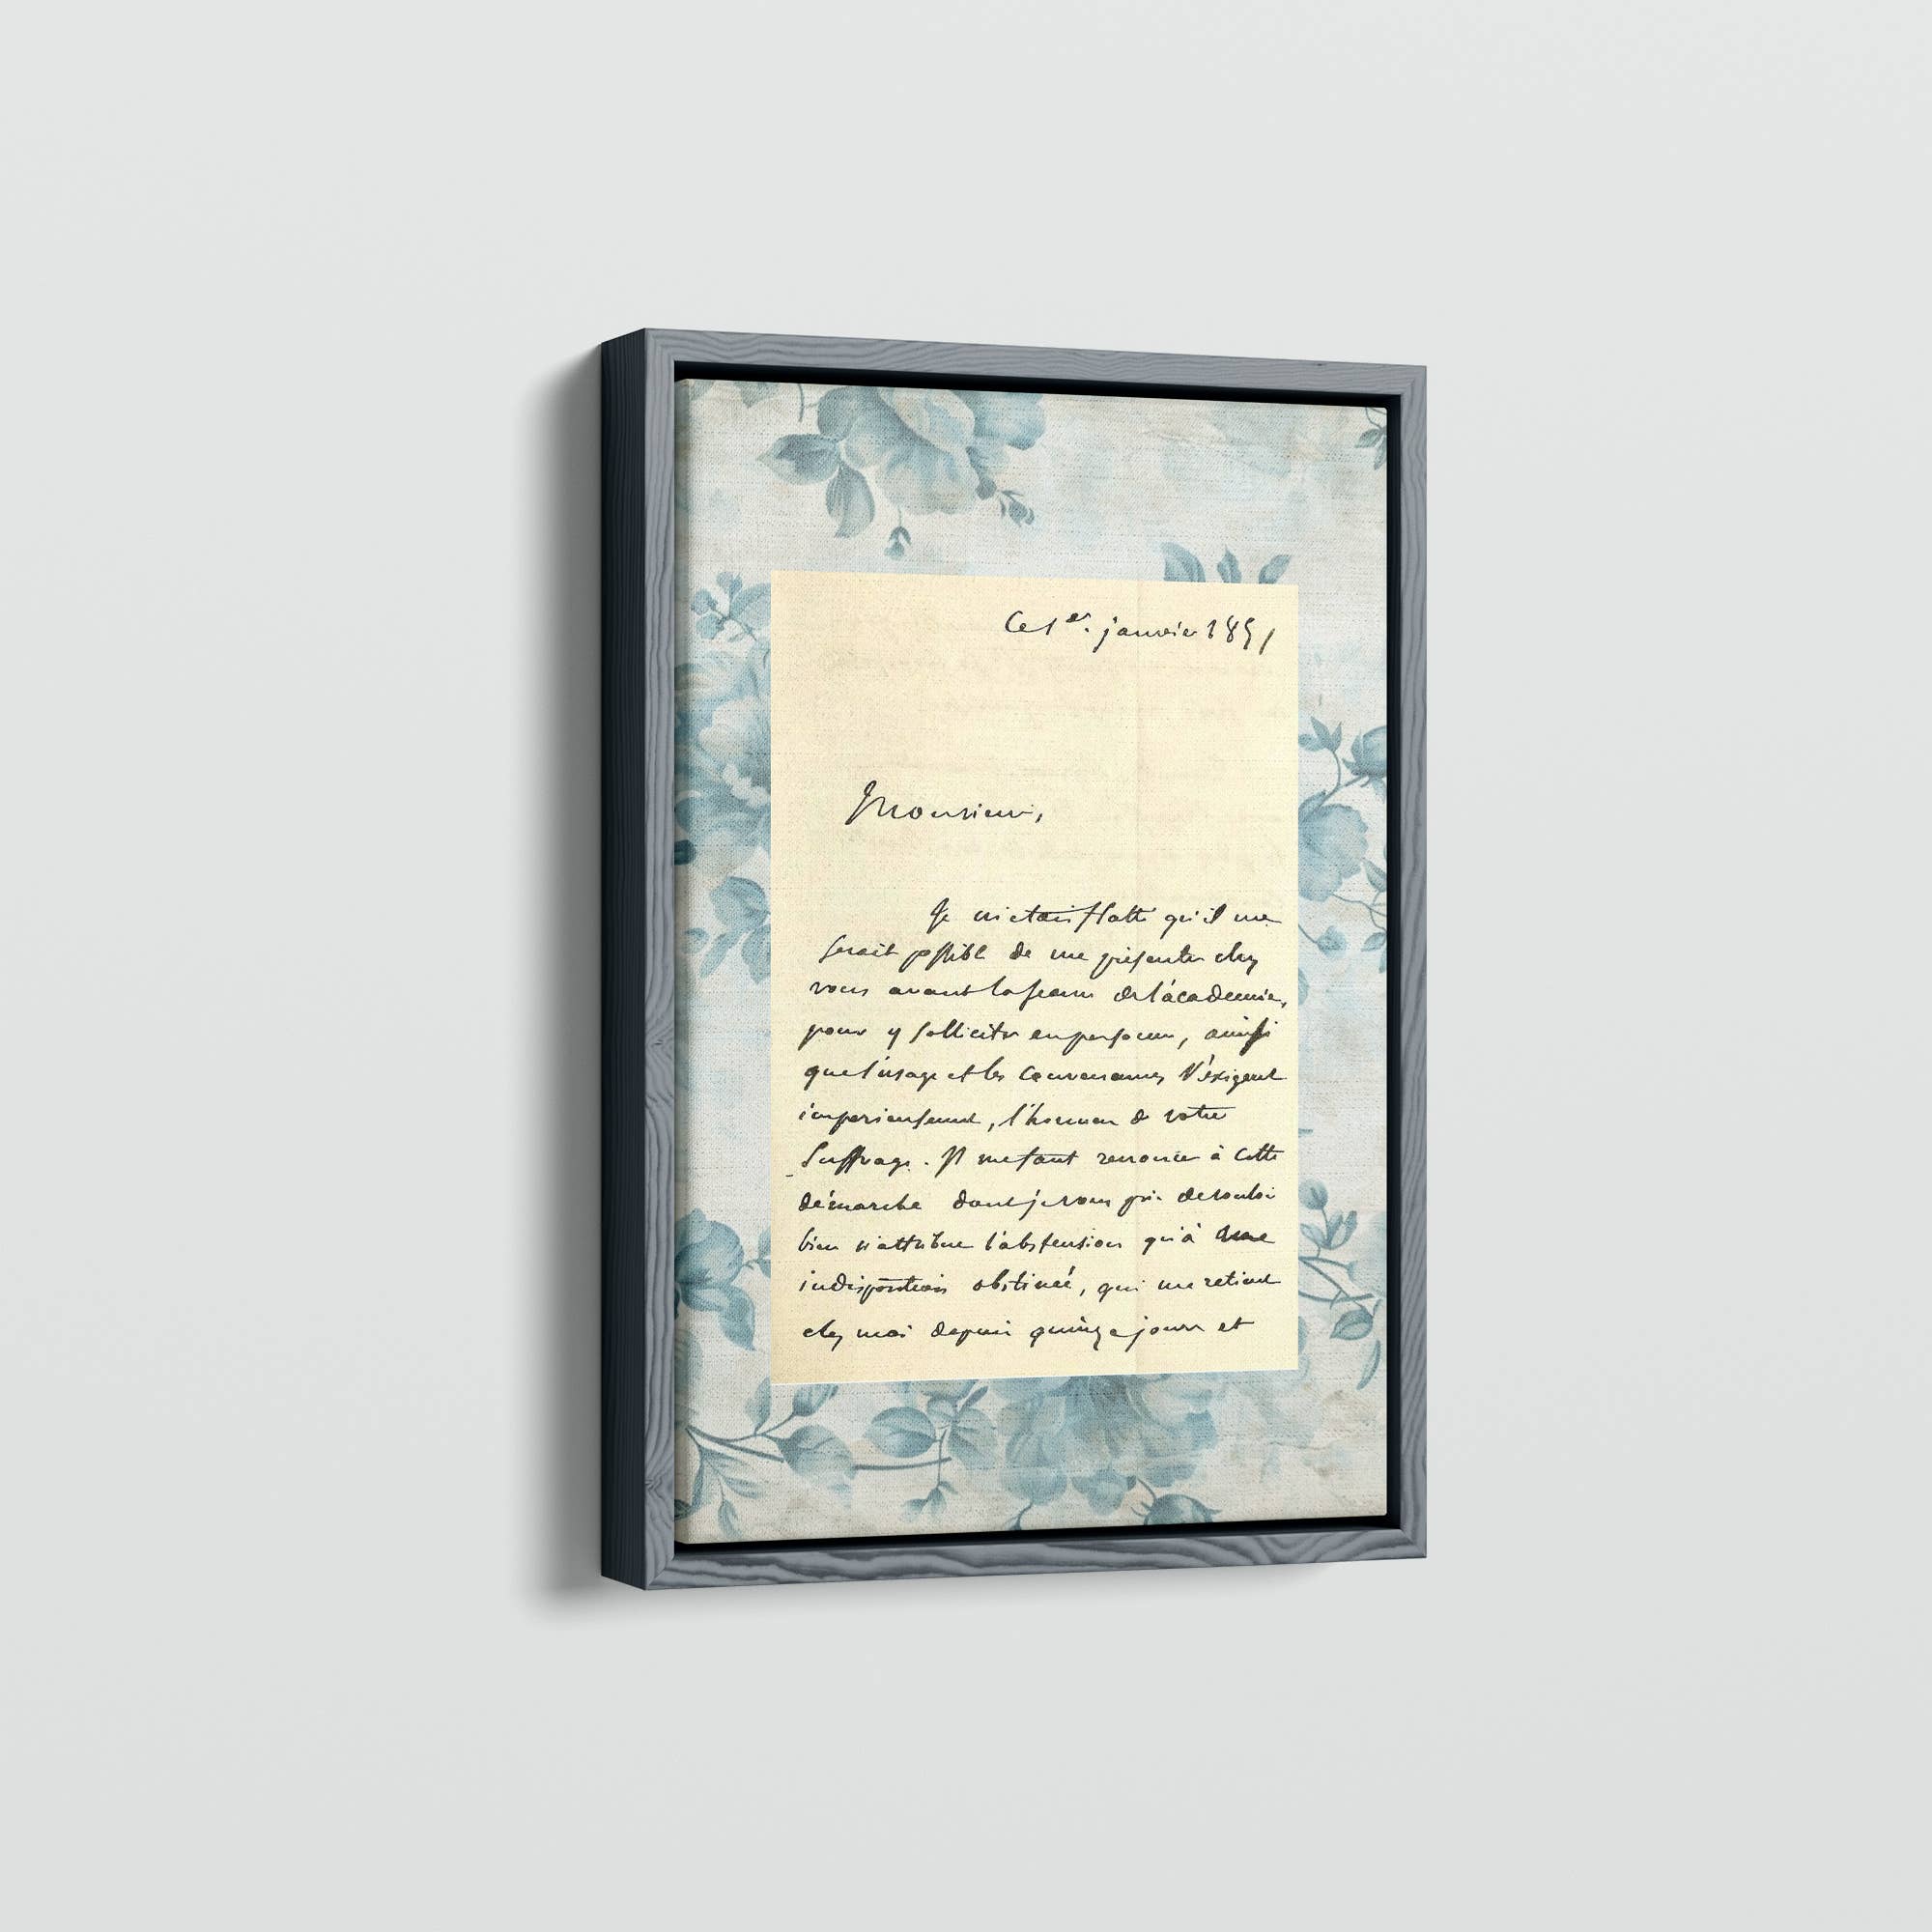 Ce 1er. janvier 1851
Monsieur,
Je m'étais flatté qu'il me
serait possible de me présenter chez
vous avant la séance de l'académie,
pour y solliciter en personne, ainsi
que l'usage et les convenances l'éxigent
impérieusement, l'honneur de votre
suffrage. Il me faut renoncer à cette
démarche dont je vous prie de vouloir
bien n'attribuer l'abstension qu'à une
indisposition obstinée, qui me retient
chez moi depuis quinze jours et